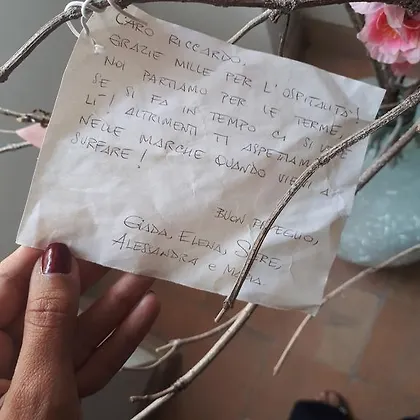 CARO RICCARDO,
GRAZIE MILLE PER L'OSPITALITÀ!
NOI PARTIAMO PER LE TERME,
SE SI FA IN TEMPO CI SI VEDE
LI-! ALTRIMENTI TI ASPETTIAMO
NELLE MARCHE QUANDO VIENI A
SURFARE!
BUON
GIADA, ELENA,
ALESSANDRA E